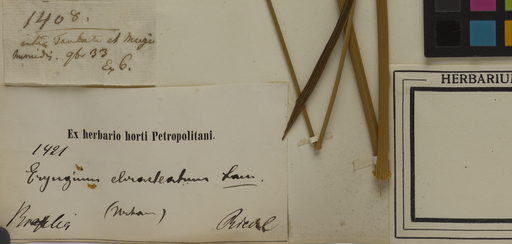 1408.
inter Taubaté et Mugi
9br 33
Ex 6.
Ex herbario horti Petropolitani.
1421
Eryngium ebracteatum Lam.
Brasilia Riedel
HERBARIU